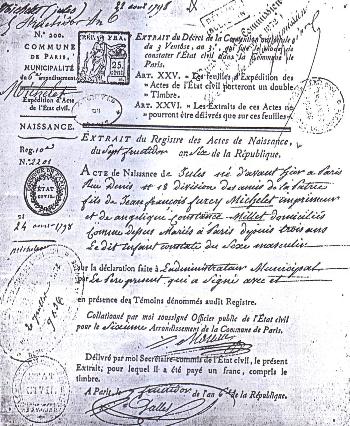 Michelet (Jules)
8 fructidor an 6
24 août 1798
N.° 200.
COMMUNE
DE PARIS,
MUNICIPALITÉ
du 6.e arrondissement
Michelet
Expédition d'Acte
de l'État civil.
25.
CENT
EXTRAIT du Décret de la Convention nationale
du 3 Ventôse, an 3.e qui fixe le mode de
constater l'État civil dans la Commune de
Paris.
ART. XXV. Les feuilles d'Expédition des
» Actes de l'État civil porteront un double
» Timbre.
ART. XXVI. Les Extraits de ces Actes ne
» pourront être délivrés que sur ces feuilles.
NAISSANCE.
EXTRAIT du Registre des Actes de Naissance,
du Sept fructidor an Six de la République.
Reg. 10
N.° 2201
ACTE de Naissance de Jules né d'avant hier à Paris
Rue Denis n.° 18 division des amis de la Patrie
fils de Jean françois furcy Michelet imprimeur
et de angelique Constance Millet domiciliés
ETAT
CIVIL
24 août 1798
comme dessus Mariés à Paris depuis trois ans
Le dit Enfant constaté du Sexe masculin
sur la déclaration faite à L'administrateur Municipal
par Le Pere present qui a Signé avec et
en présence des Témoins dénommés audit Registre.
Collationné par moi soussigné Officier public de l'État civil
pour le Sixieme Arrondissement de la Commune de Paris.
Délivré par moi Secrétaire-commis de l'État civil, le présent
Extrait, pour lequel il a été payé un franc, compris le
timbre.
A Paris, le fructidor de l'an 6.e de la République.